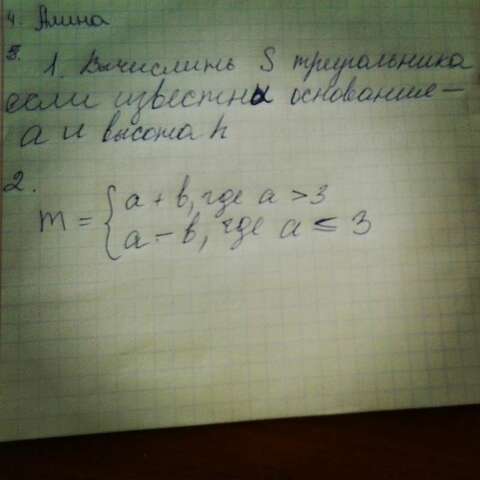 4. Алина
5.
1. Вычислить S треугольника
если известны основание —
a и высота h
2.
m = { a + b, где a > 3
a - b, где a ≤ 3